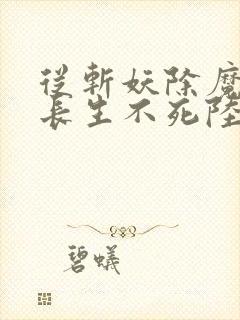 從斬妖除魔
長生不死陸
碧蟻